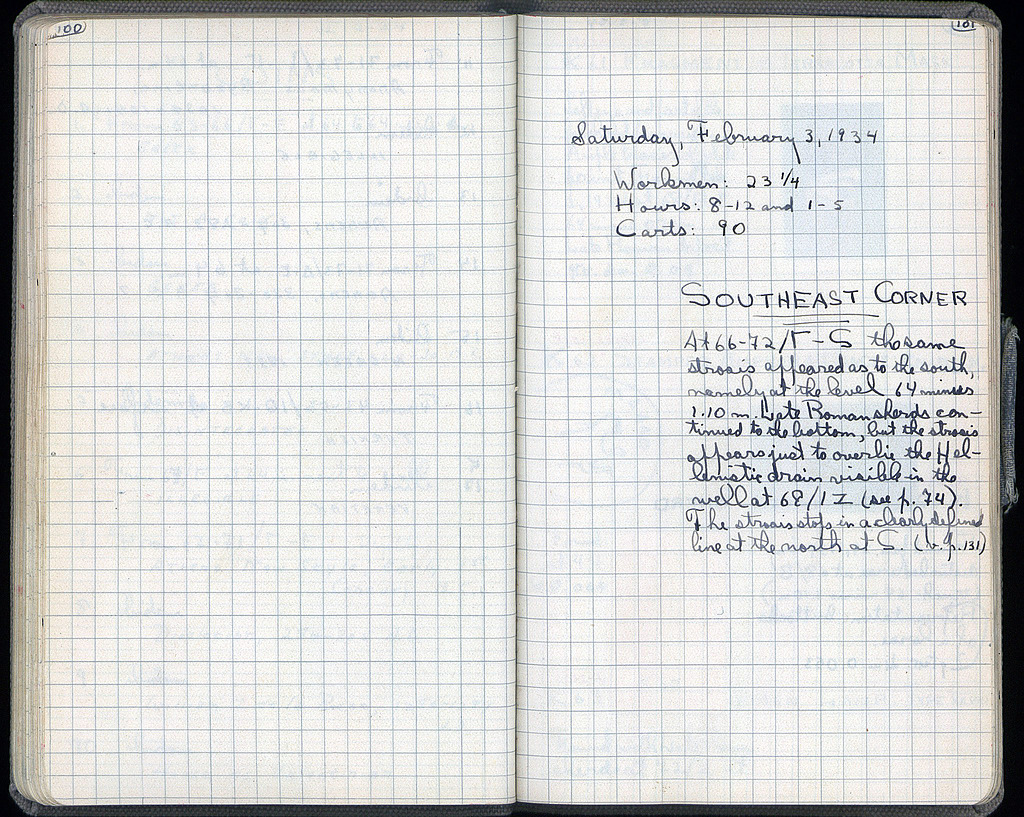 100
101
Saturday, February 3, 1934
Workmen: 23 1/4
Hours: 8-12 and 1-5
Carts: 90
SOUTHEAST CORNER
At 66-72/Γ-S the same
strosis appeared as to the south,
namely at the level 64 minus
1.10 m. Late Roman sherds con-
tinued to the bottom, but the strosis
appears just to overlie the Hel-
lenistic drain visible in the
well at 68/IZ (see p. 74).
The strosis stops in a clearly defined
line at the north at S. (v. p. 131)